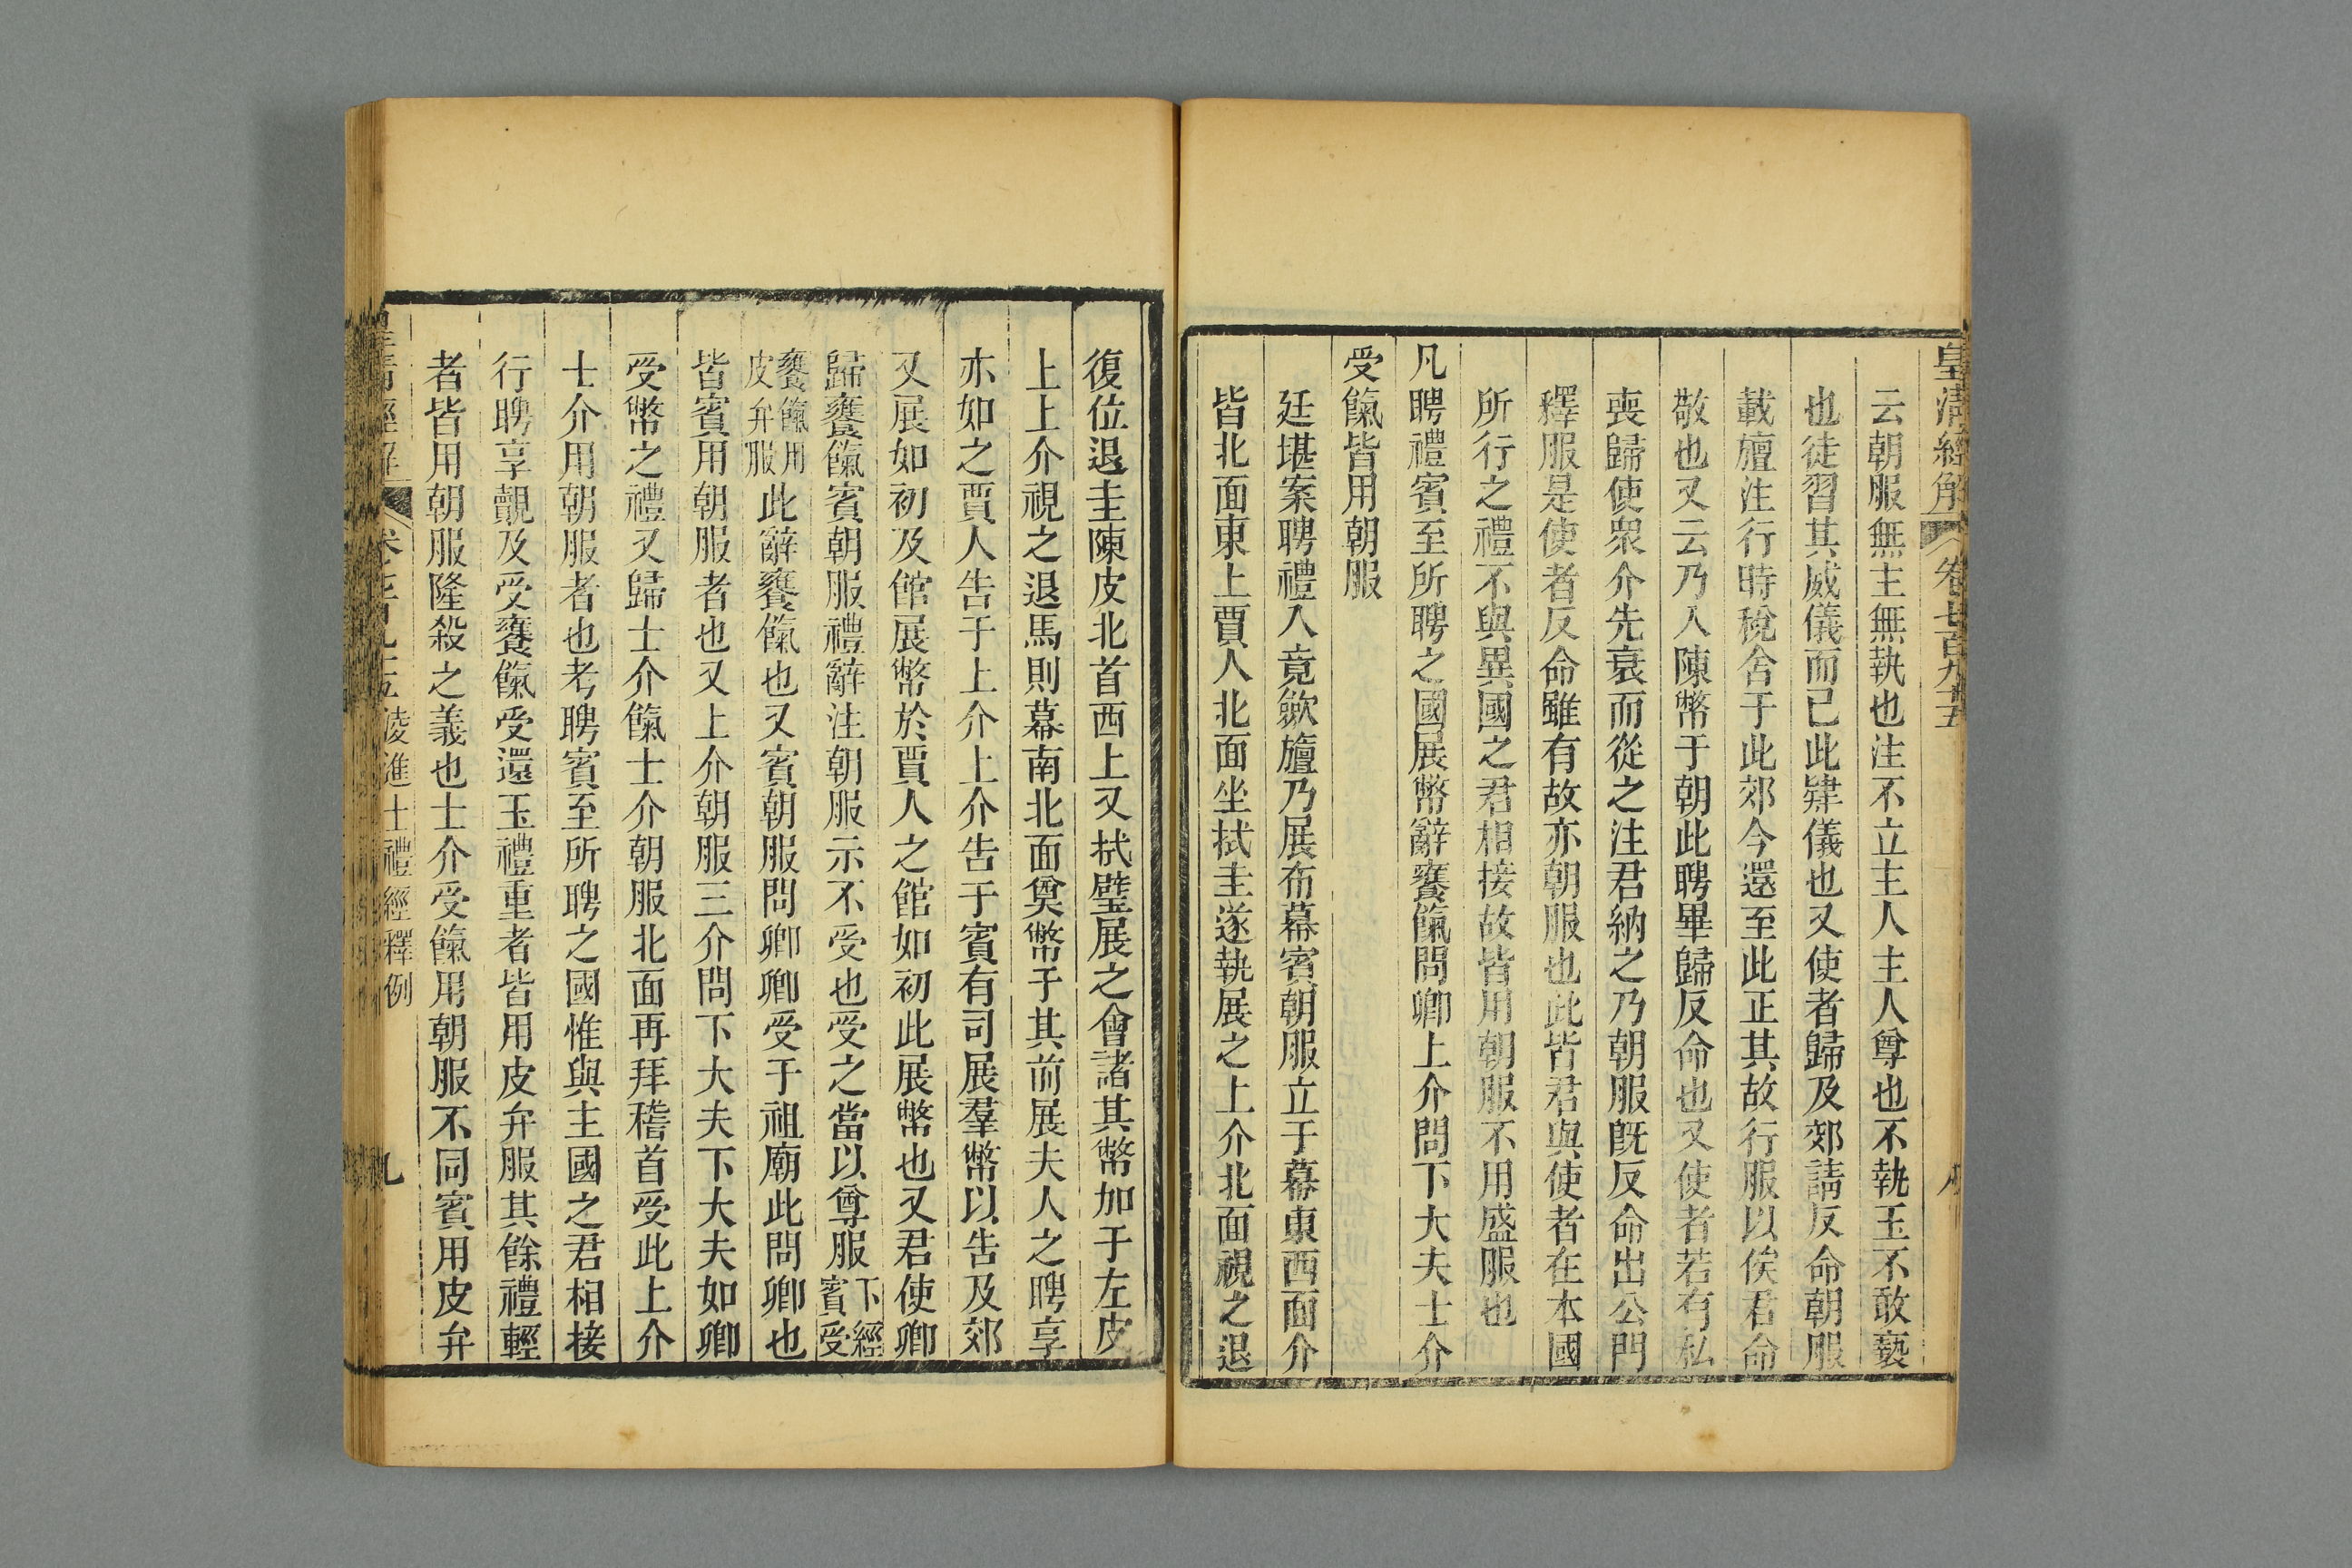 皇清經解 卷七百九十五
云朝服無主無執也注不立主人主人尊也不執玉不敢褻
也徒習其威儀而已此肄儀也又使者歸及郊請反命朝服
載旜注行時稅舍于此郊今還至此正其故行服以俟君命
敬也又云乃入陳幣于朝此聘畢歸反命也又使者若有私
喪歸使衆介先衰而從之注君納之乃朝服旣反命出公門
釋服是使者反命雖有故亦朝服也此皆君與使者在本國
所行之禮不與異國之君相接故皆用朝服不用盛服也
凡聘禮賓至所聘之國展幣辭饔餼問卿上介問下大夫士介
受餼皆用朝服
廷堪案聘禮入竟歛旜乃展布幕賓朝服立于幕東西面介
皆北面東上賈人北面坐拭圭遂執展之上介北面視之退
復位退圭陳皮北首西上又拭璧展之會諸其幣加于左皮
上上介視之退馬則幕南北面奠幣于其前展夫人之聘享
亦如之賈人告于上介上介告于賓有司展羣幣以告及郊
又展如初及館展幣於賈人之館如初此展幣也又君使卿
歸饔餼賓朝服禮辭注朝服示不受也受之當以尊服下經賓受
饔餼用皮弁服此辭饔餼也又賓朝服問卿卿受于祖廟此問卿也
皆賓用朝服者也又上介朝服三介問下大夫下大夫如卿
受幣之禮又歸士介餼士介朝服北面再拜稽首受此上介
士介用朝服者也考聘賓至所聘之國惟與主國之君相接
行聘享覿及受饔餼受還玉禮重者皆用皮弁服其餘禮輕
者皆用朝服隆殺之義也士介受餼用朝服不同賓用皮弁
凌進士禮經釋例 九